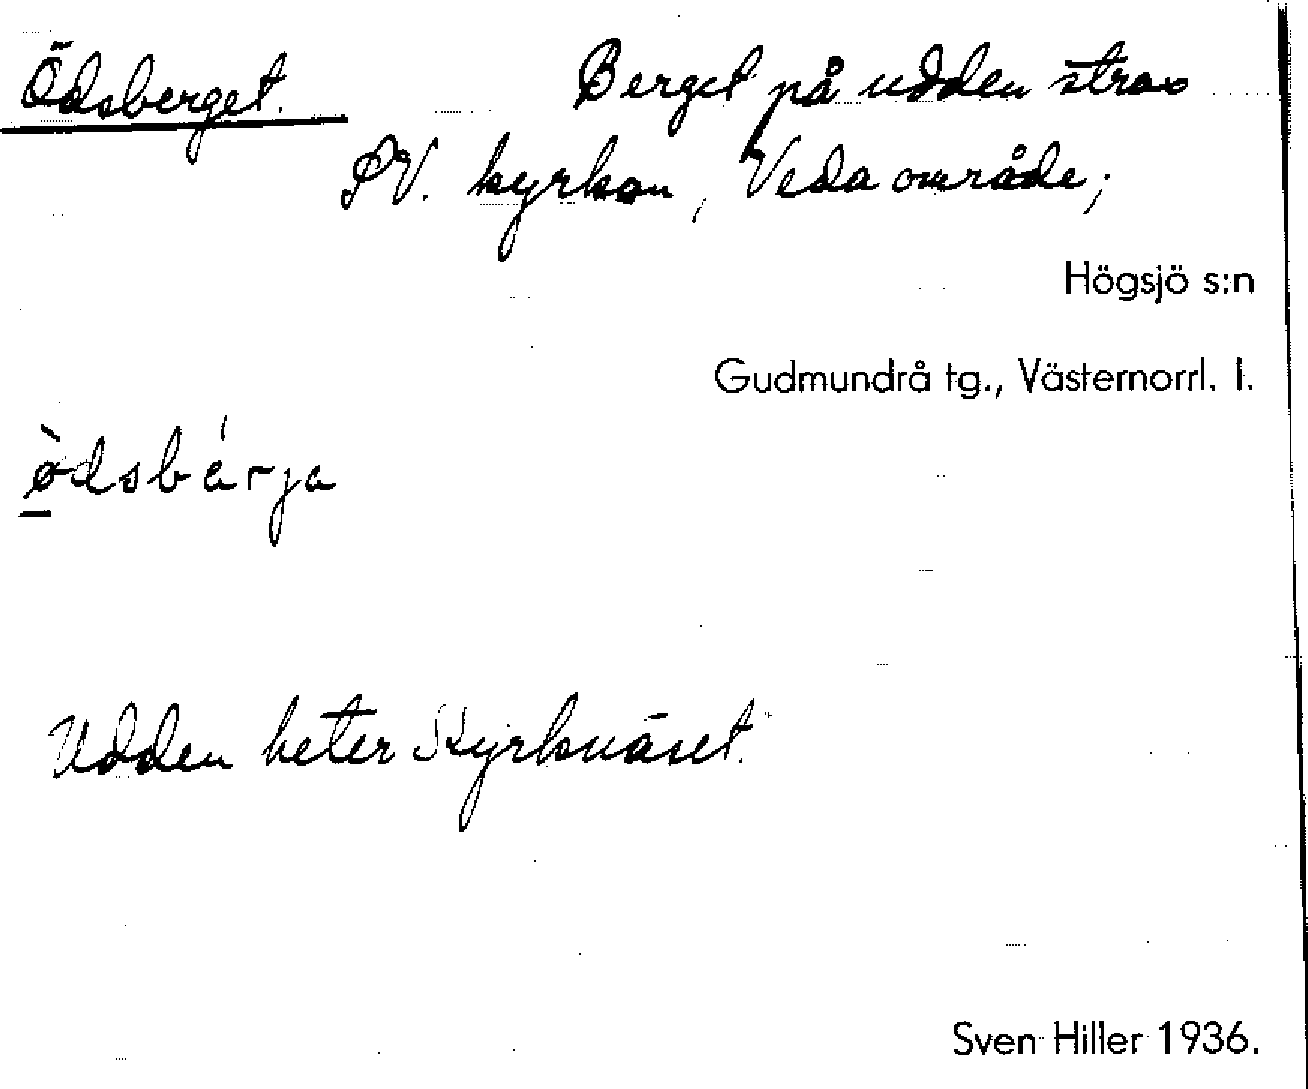 Ödsberget. Berget på udden strax
SV. kyrkan, Veda område;
Högsjö s:n
Gudmundrå tg., Västernorrl. l.
ø̀dsbárja
Udden heter Kyrknäset.
Sven Hiller 1936.